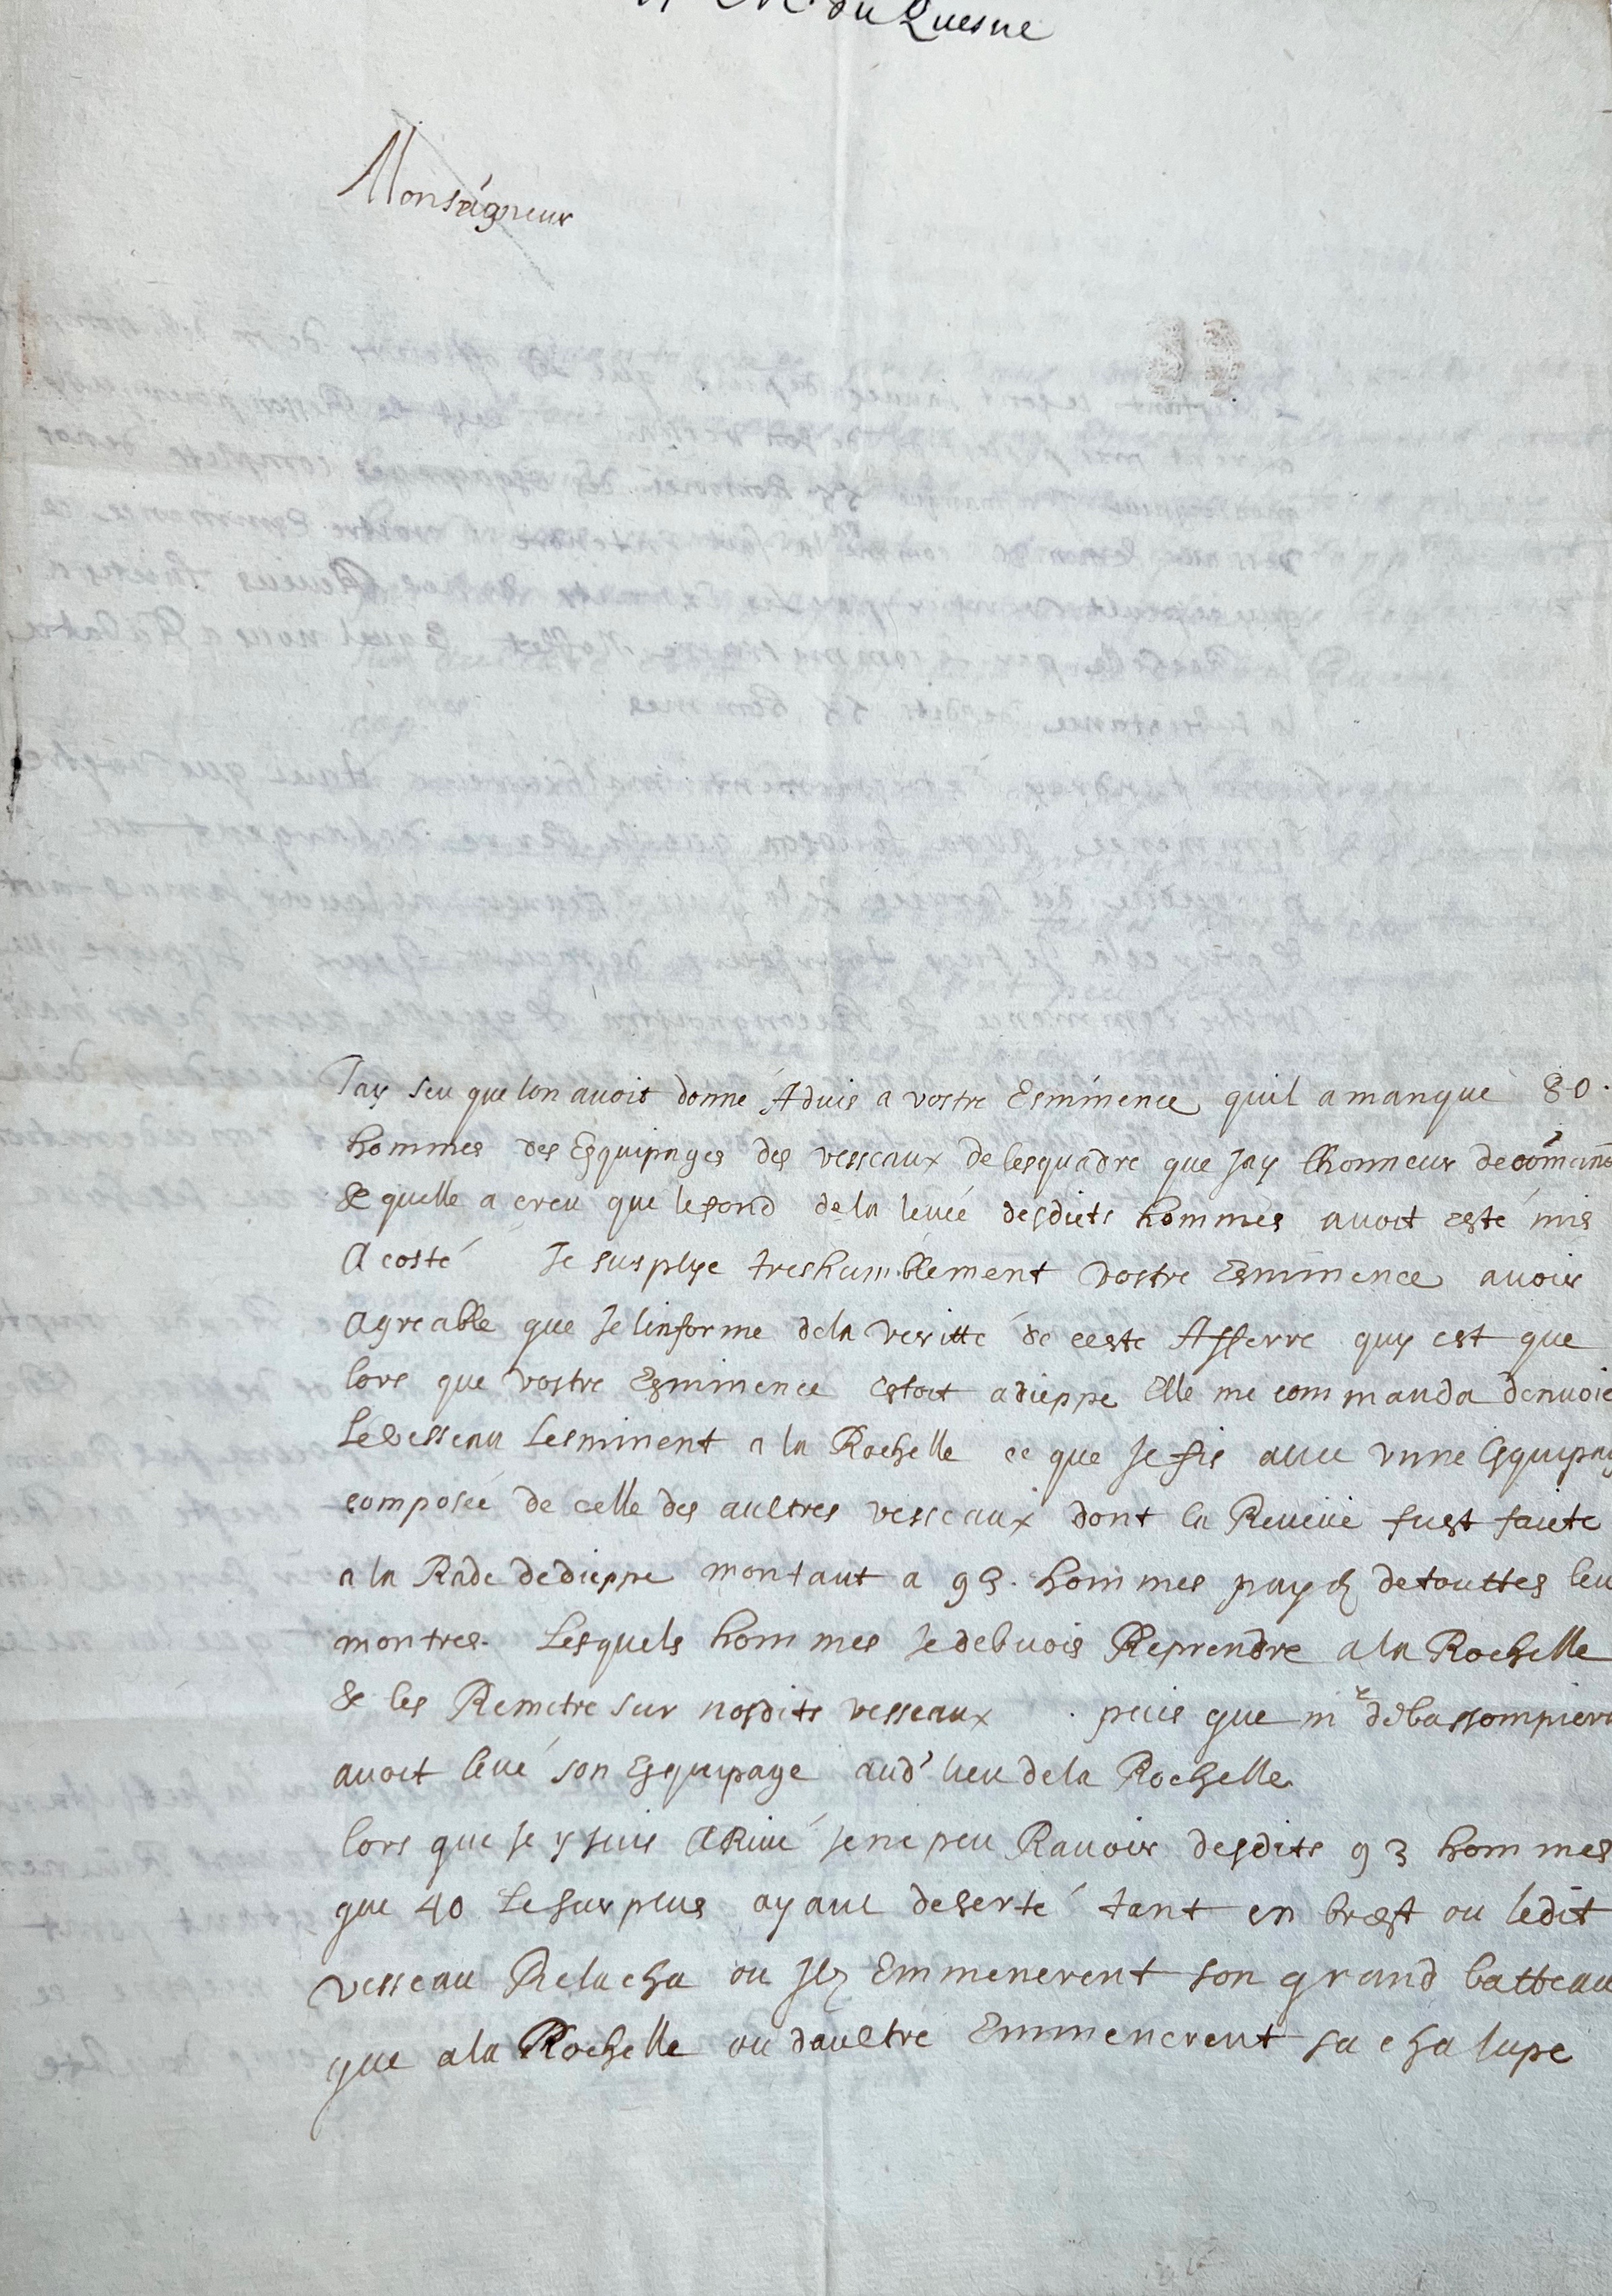 du Quesne
Monseigneur
Jay seu que lon avoit donné Advis a vostre Esminence quil a manqué 80
hommes des Esquipages des vesseaux de lesquadre que jay lhonneur de comand
& quelle a creu que le fond de la levée desdicts hommes avoit esté mis
A costé Je susplye treshumblement vostre Esminence avoir
Agreable que Je linforme dela veritté de ceste Afferre quy est que
lors que vostre Esminence estoit a dieppe Elle me commanda denvoie
Le vesseau Lesminent a la Rochelle ce que Je fis avec vnne Esquipag
composée de celle des aultres vesseaux dont la Reveüe fust faicte
a la Rade de dieppe montant a 93 hommes payez de touttes leu
montres Lesquels hommes Je debvois Reprendre a la Rochelle
& les Remetre sur nosdits vesseaux puis que mr de bassompierre
avoit levé son Esquipage audt lieu dela Rochelle
lors que Je y suis ARivé Je ne peu Ravoir desdits 93 hommes
que 40 Le surplus ayant deserté tant en brest ou ledit
vesseau Relacha ou Jlz Emmenerent son grand batteau
que a la Rochelle ou daultre Emmenerent sa chalupe